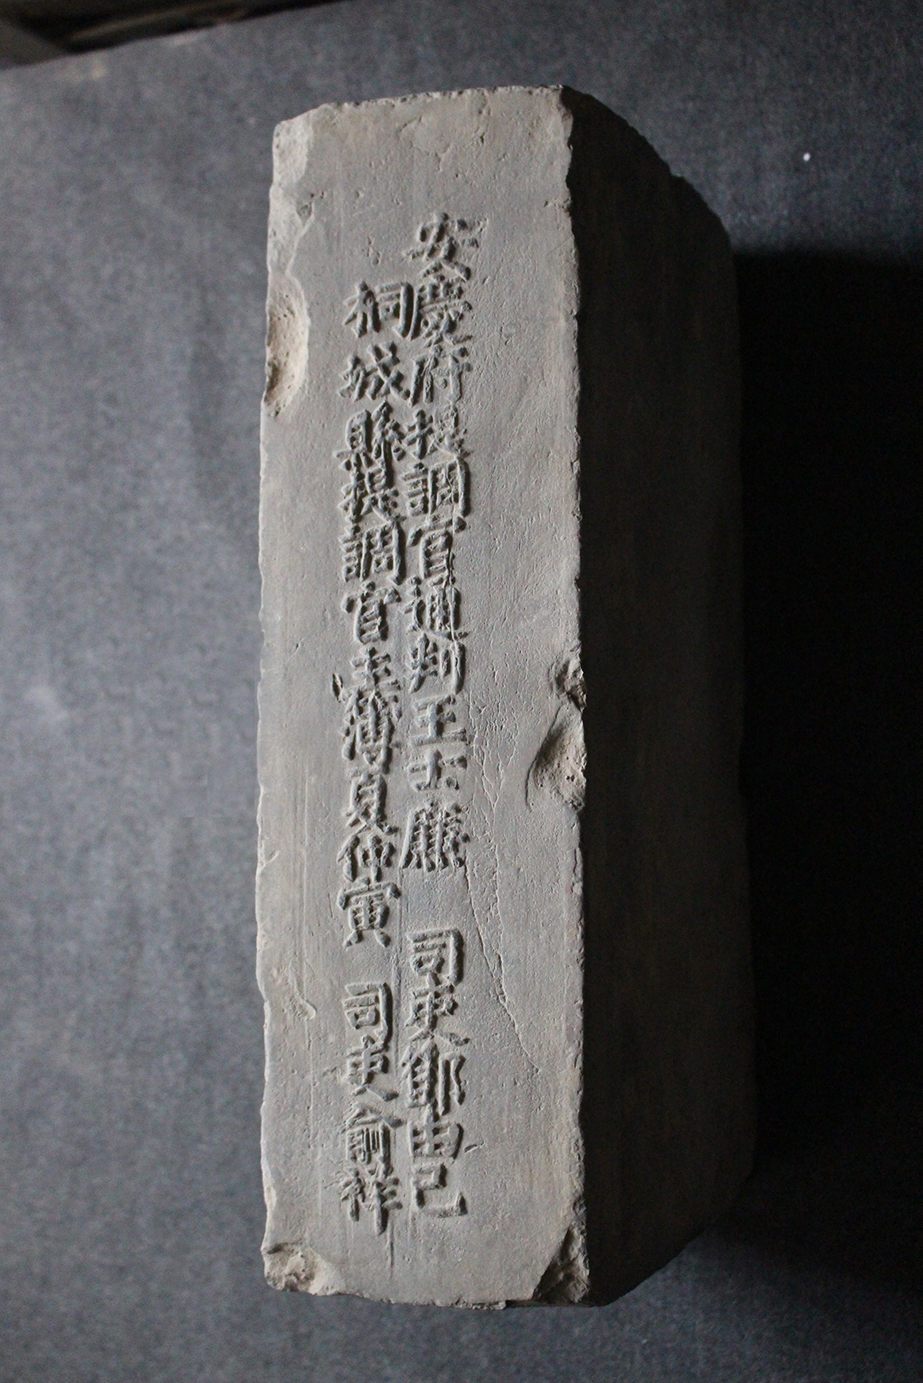 安慶府提調官通判王士廉 司吏鄭由己
桐城縣提調官主簿夏仲寅 司吏俞祥